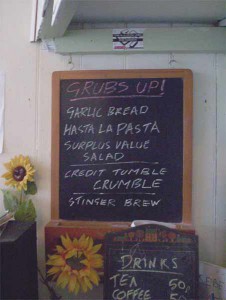 GRUBS UP!
GARLIC BREAD
HASTA LA PASTA
SURPLUS VALUE
SALAD
CREDIT TUMBLE
CRUMBLE
STINGER BREW
DRINKS
TEA 50
COFFEE